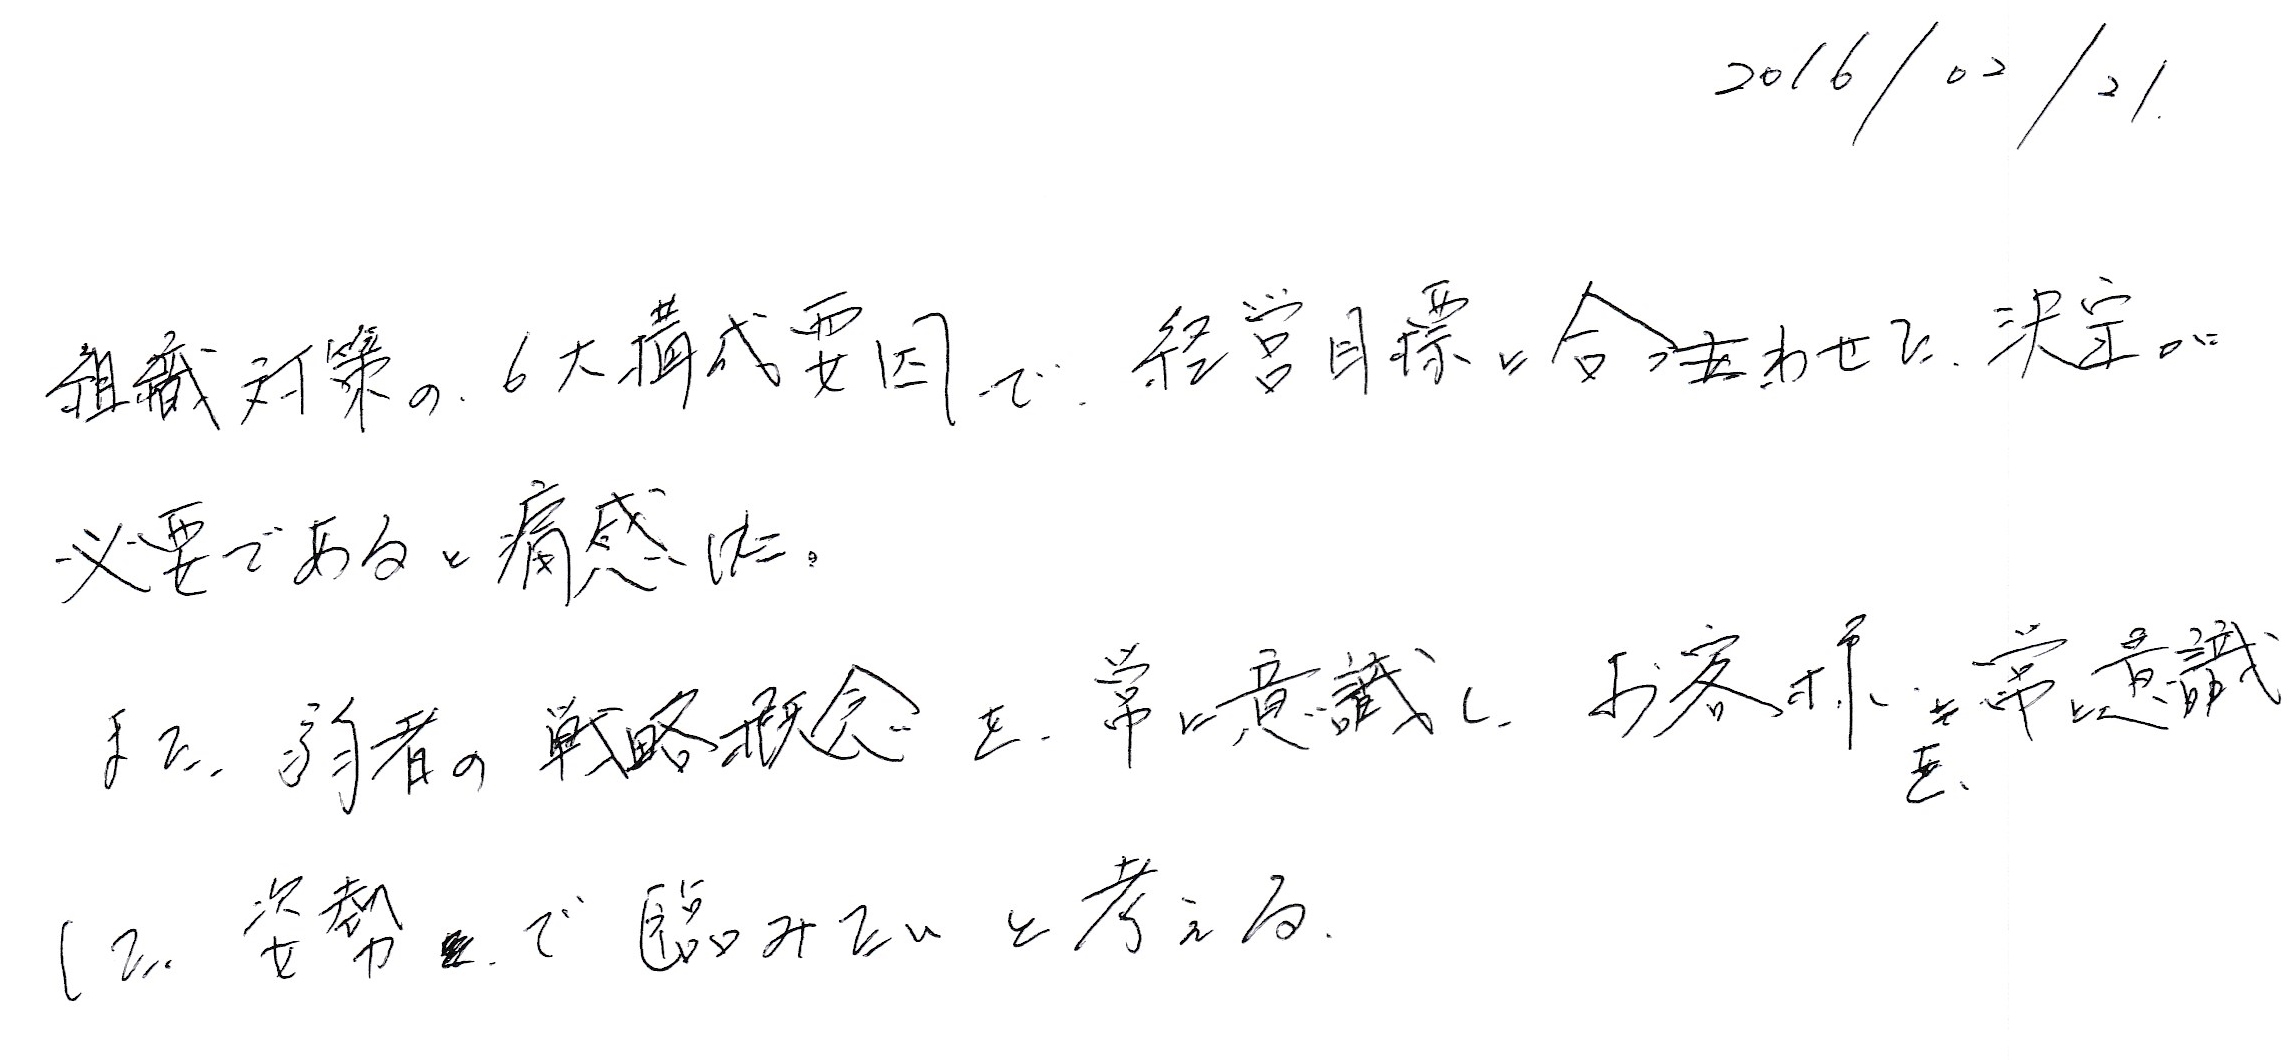 2016/02/21.
組織対策の.6大構成要因で.経営目標に合わせた.決定が
必要であると痛感した。
また.弱者の戦略概念を.常に意識し.お客様を.常に意識
した.姿勢で臨みたいと考える.